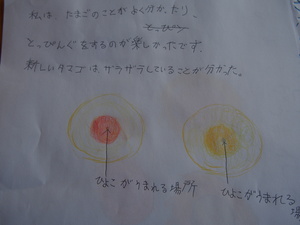 私は、たまごのことがよく分かったり、
とっぴんぐをするのが楽しかったです。
新しいタマゴは、ザラザラしていることが分かった。
ひよこがうまれる場所
ひよこがうまれる
場